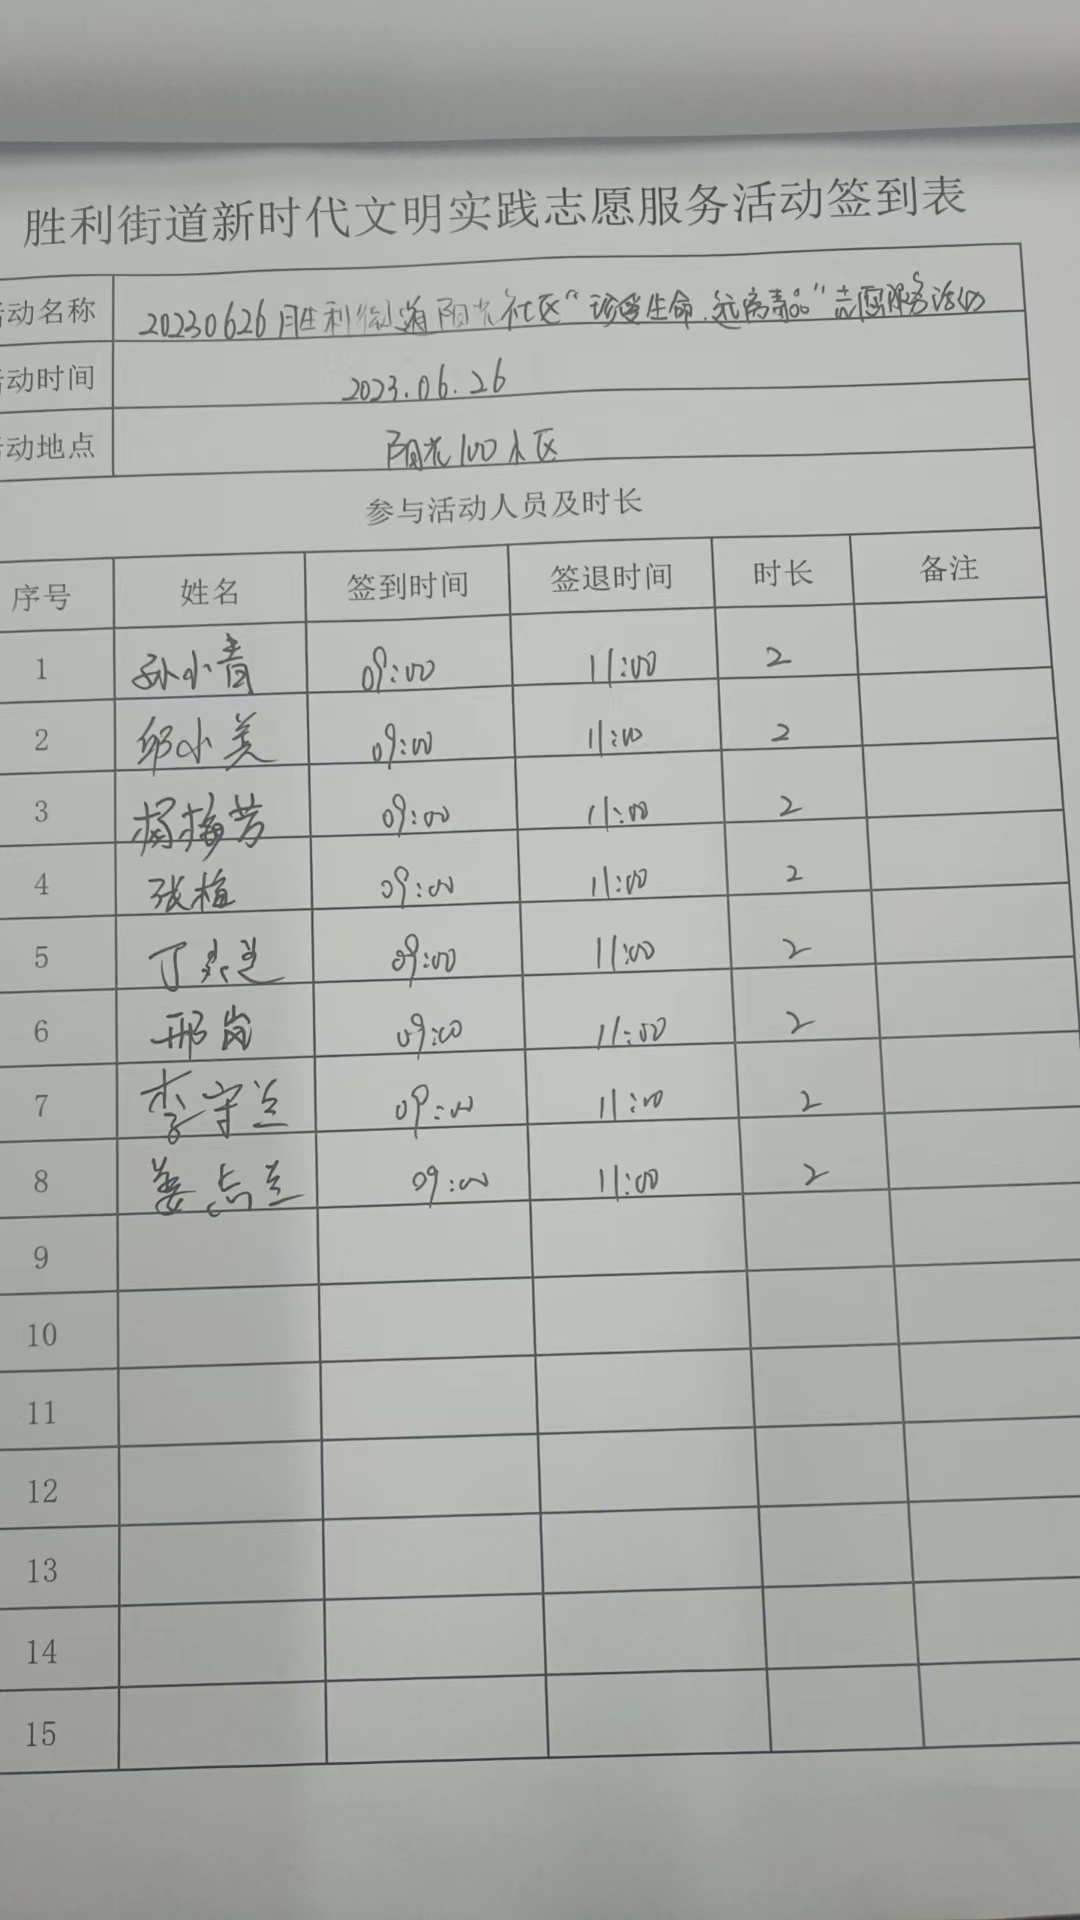 胜利街道新时代文明实践志愿服务活动签到表
活动名称 20230626胜利街道阳光社区“珍爱生命.远离毒品”志愿服务活动
活动时间 2023.06.26
活动地点 阳光100小区
参与活动人员及时长
序号 姓名 签到时间 签退时间 时长 备注
1 孙小青 09:00 11:00 2
2 邱小美 09:00 11:00 2
3 杨梅芳 09:00 11:00 2
4 张植 09:00 11:00 2
5 丁 09:00 11:00 2
6 邢岗 09:00 11:00 2
7 李守兰 09:00 11:00 2
8 姜点兰 09:00 11:00 2
9
10
11
12
13
14
15